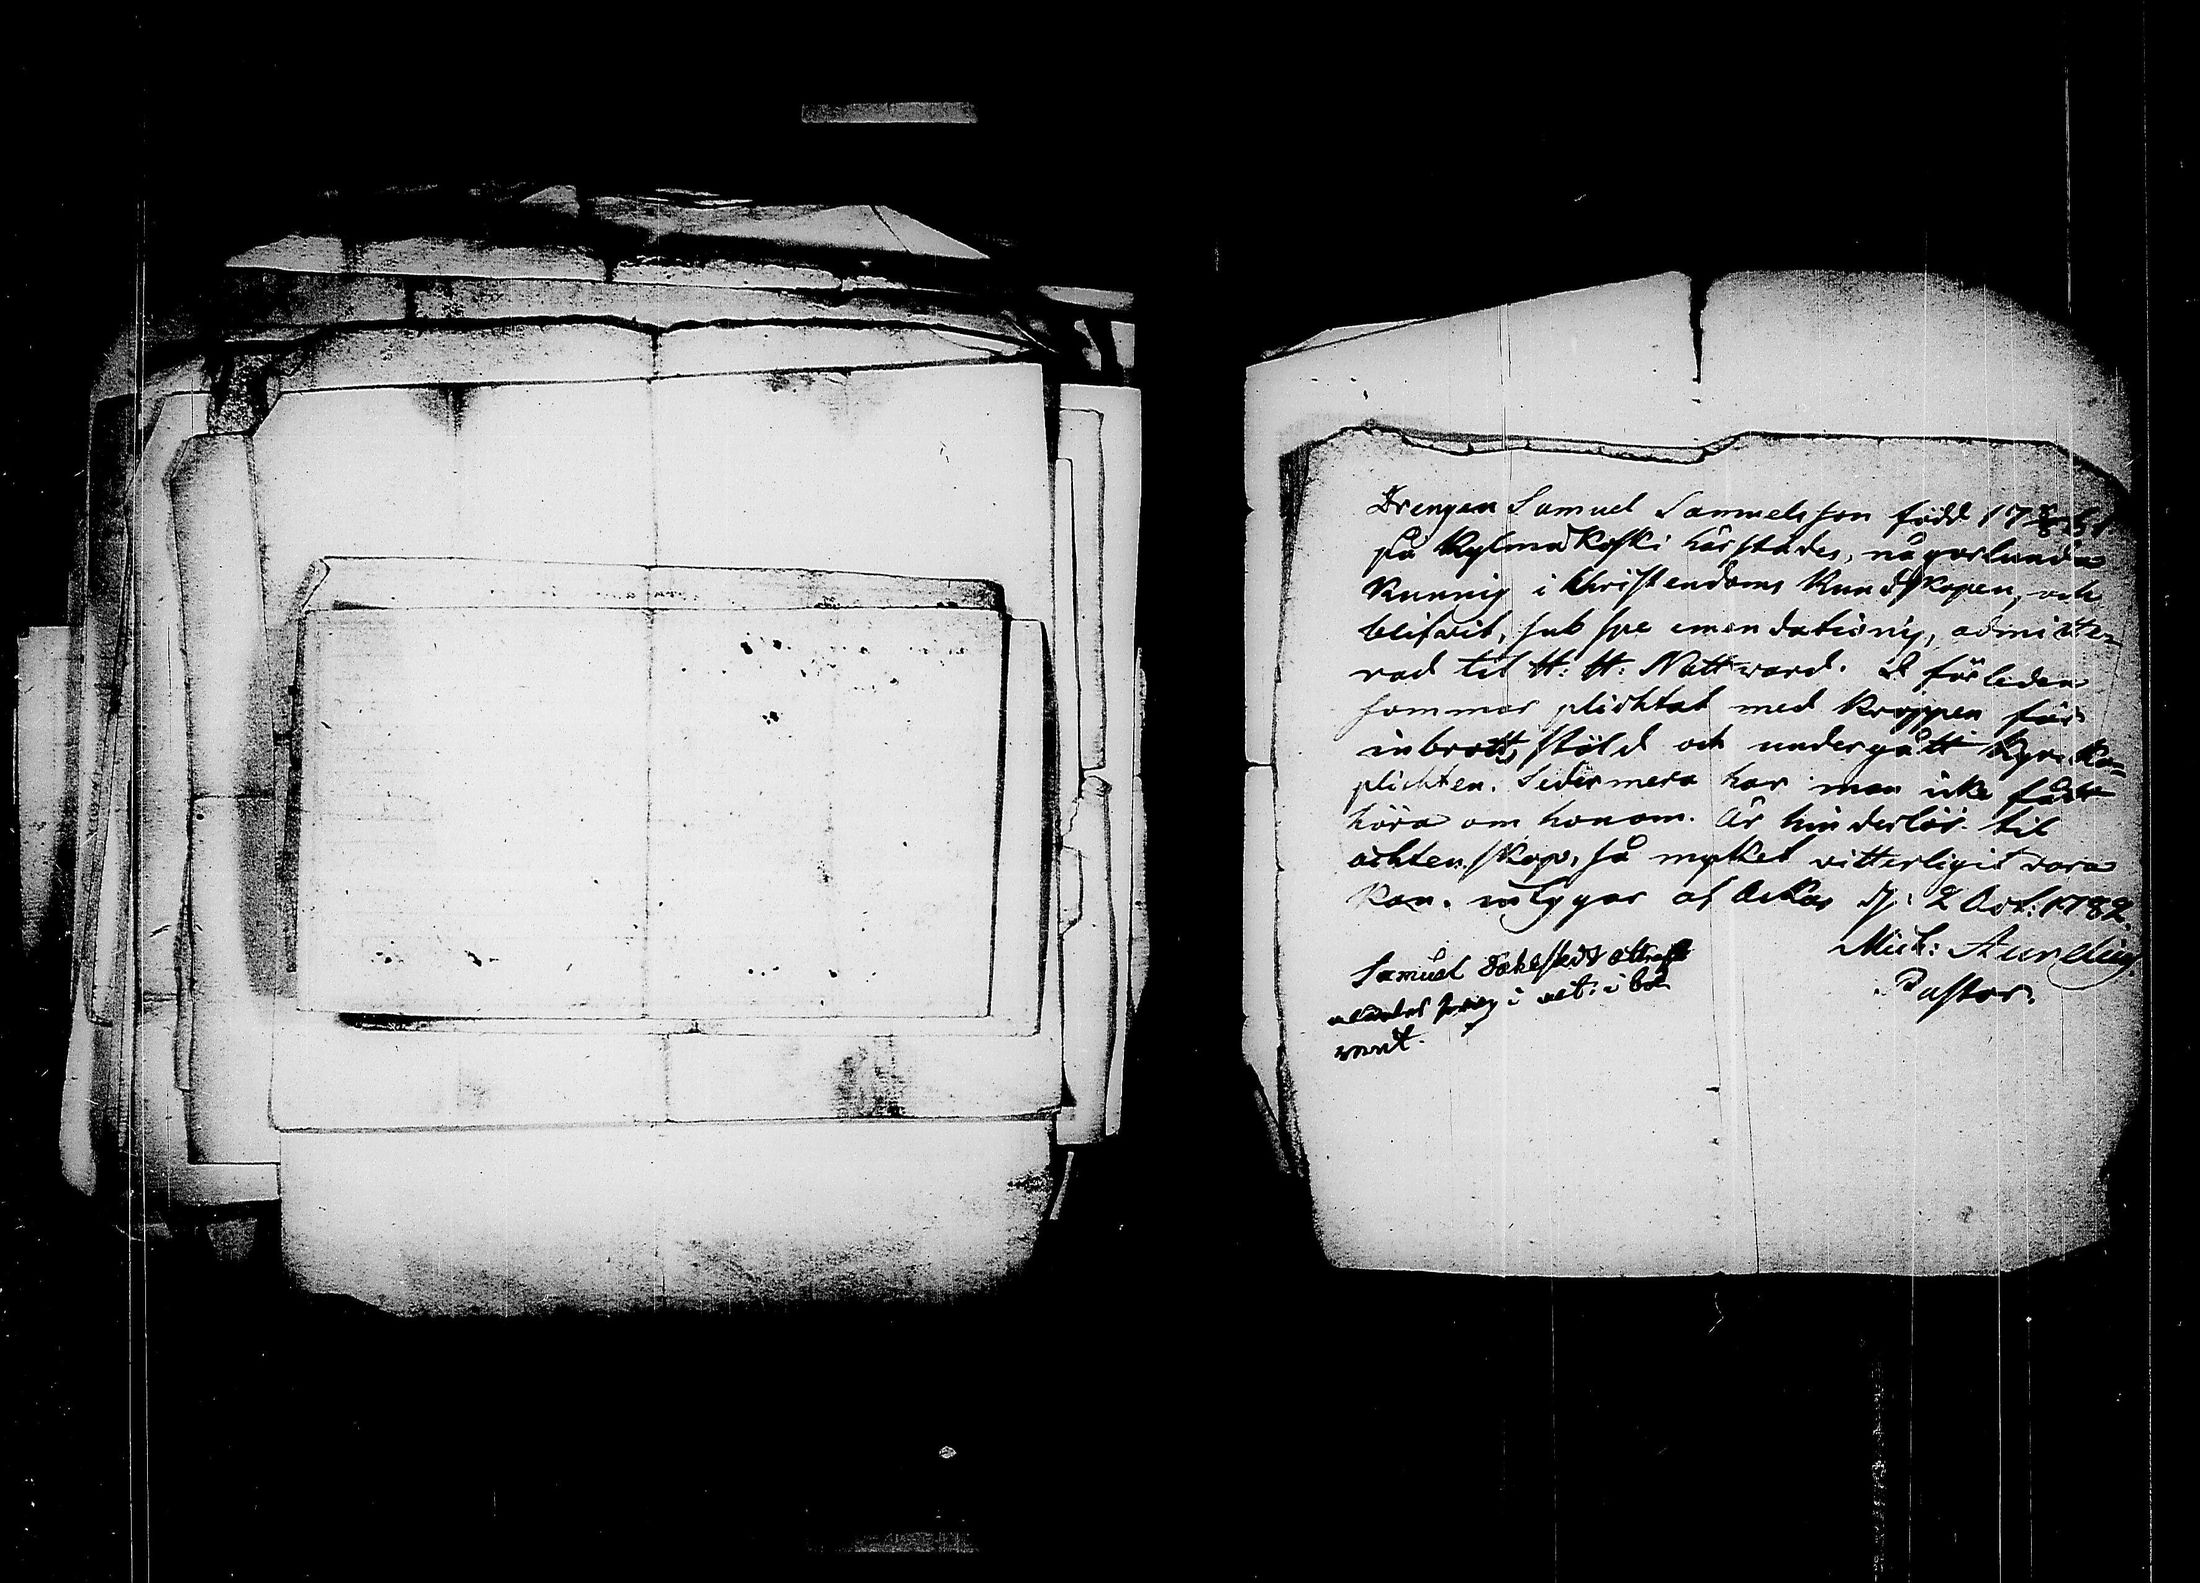 Drengen Samuel Samuelsson född 17
på Kylmäkoski härstädes, någorlunda
kunnig i Christendoms kundskapen, och
blifvit, sub spe emendationis, admitte-
rad til H: H: Nattvard. I förleden
sommar plichtat med kroppen för
inbrotts stöld och undergått kyrko-
plichten. Sedermera har man icke fådt
höra om honom. Är hinderlös til
ächtenskap, så mycket vitterligit vara
kan. intygar af Ackas d: 2 Oct: 1782.
Mich: Aurelius.
Pastor.
Samuel
i